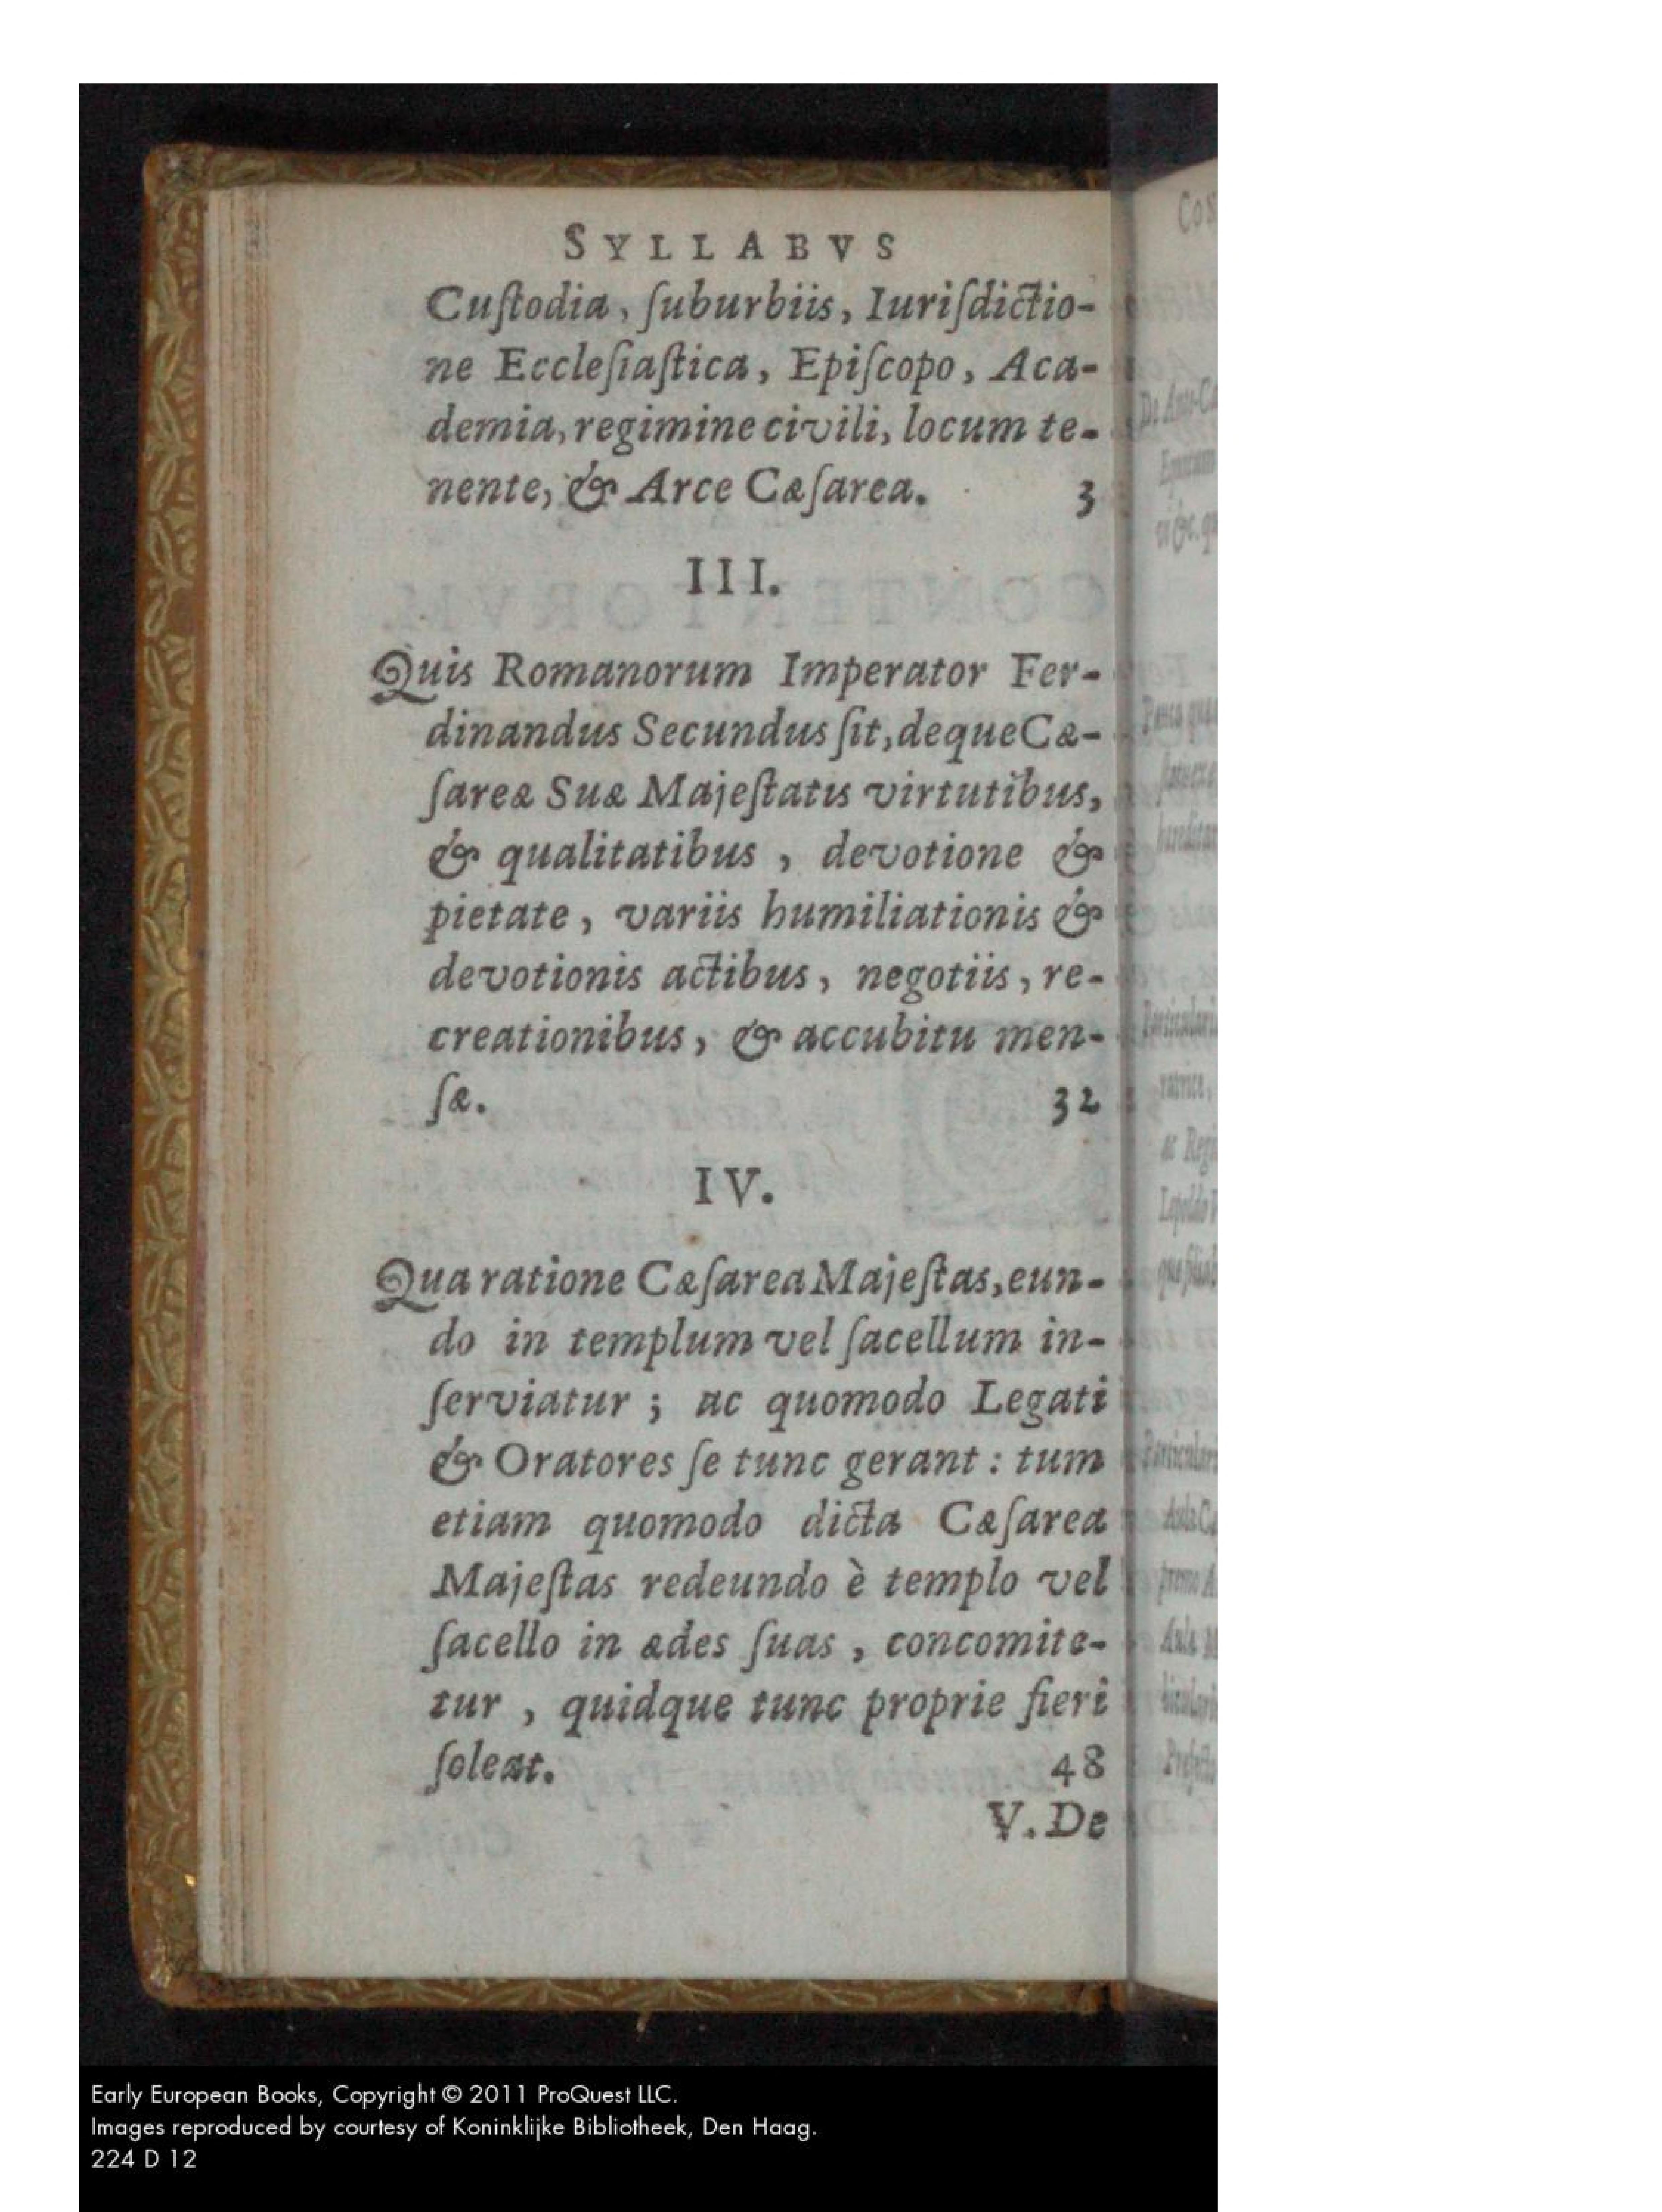 SYLLABVS
Cuſtodia, ſuburbiis, Iuriſdictio-
ne Eccleſiaſtica, Epiſcopo, Aca-
demia, regimine civili, locum te-
nente, & Arce Cæſarea. 3
III.
Quis Romanorum Imperator Fer-
dinandus Secundus ſit, deque Cæ-
ſareæ Suæ Majeſtatis virtutibus,
& qualitatibus, devotione &
pietate, variis humiliationis &
devotionis actibus, negotiis, re-
creationibus, & accubitu men-
ſæ. 32
IV.
Qua ratione Cæſarea Majeſtas, eun-
do in templum vel ſacellum in-
ſerviatur; ac quomodo Legati
& Oratores ſe tunc gerant: tum
etiam quomodo dicta Cæſarea
Majeſtas redeundo è templo vel
ſacello in ædes ſuas, concomite-
tur, quidque tunc proprie fieri
ſoleat. 48
V. De
Early European Books, Copyright © 2011 ProQuest LLC.
Images reproduced by courtesy of Koninklijke Bibliotheek, Den Haag.
224 D 12